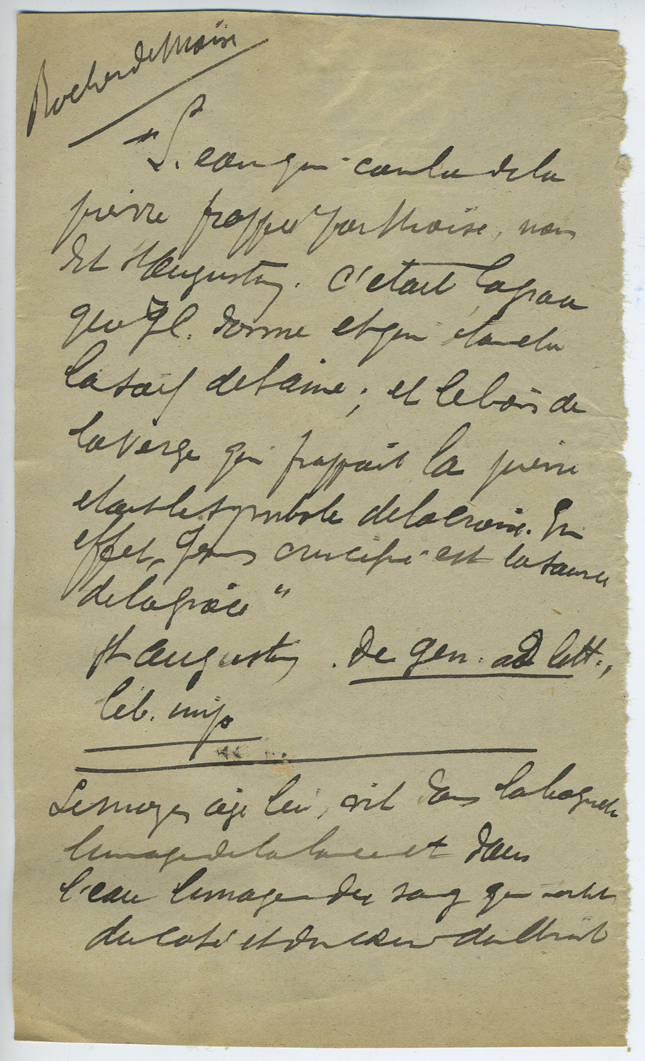 Rocher de Moïse
"L'eau qui coula de la
pierre frappée par Moïse, nous
dit St Augustin. C'était la grace
que J.C. donne et qui étanche
la soif de l'ame ; et le bois de
la verge qui frappait la pierre
etait le symbole de la croix. En
effet, Jesus crucifié est la source
de la grâce"
St Augustin. De gen. ad litt.,
lib. imp.
Le moyen age lui, vit dans la baguette
l'image de la lance et dans
l'eau l'image du sang qui sortit
du coté et du cœur du Christ